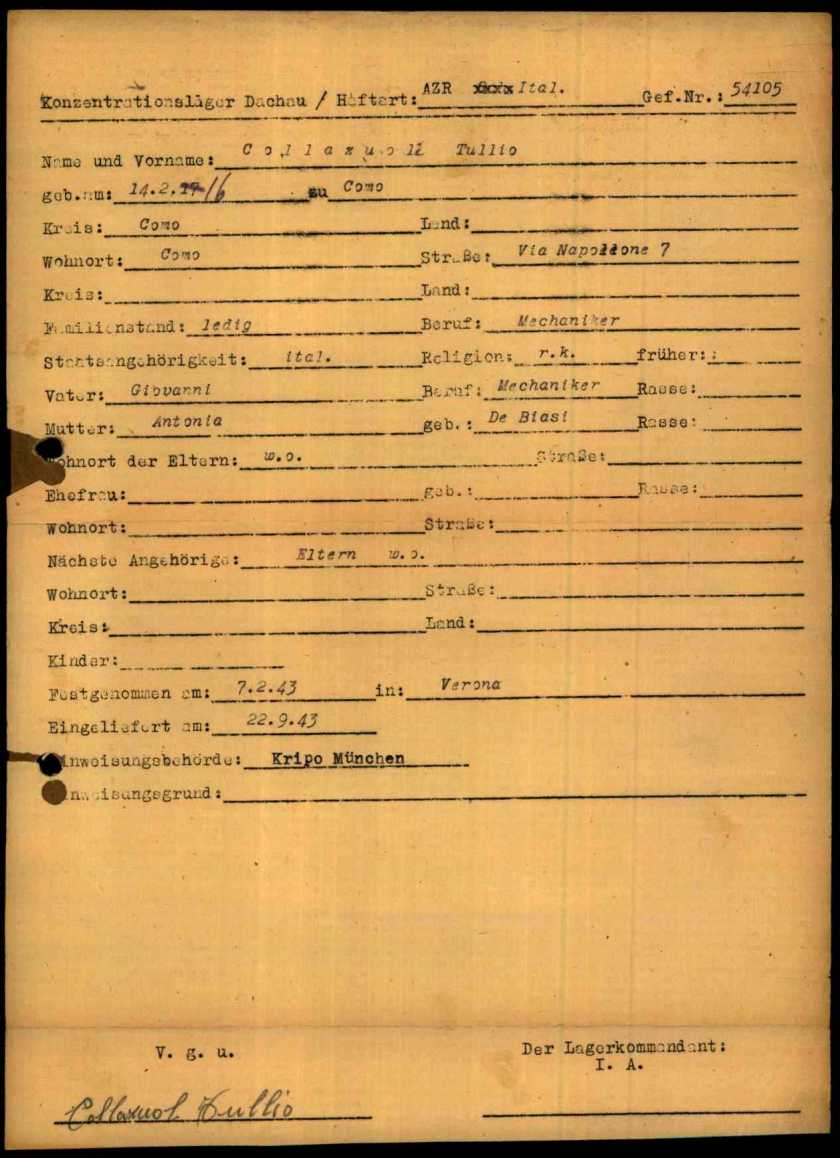 Konzentrationslager Dachau / Haftart: AZR Ital. Gef.Nr.: 54105
Name und Vorname: Collazuoll Tullio
geb.am: 14.2.16 zu Como
Kreis: Como Land:
Wohnort: Como Straße: Via Napoleone 7
Kreis: Land:
Familienstand: ledig Beruf: Mechaniker
Staatsangehörigkeit: ital. Religion: r.k. früher:
Vater: Giovanni Beruf: Mechaniker Rasse:
Mutter: Antonia geb.: De Biasi Rasse:
Wohnort der Eltern: w.o. Straße:
Ehefrau: geb.: Rasse:
Wohnort: Straße:
Nächste Angehörige: Eltern w.o.
Wohnort: Straße:
Kreis: Land:
Kinder:
Festgenommen am: 7.2.43 in: Verona
Eingeliefert am: 22.9.43
Einweisungsbehörde: Kripo München
Einweisungsgrund:
V. g. u. Der Lagerkommandant:
I. A.
Collazuol Tullio